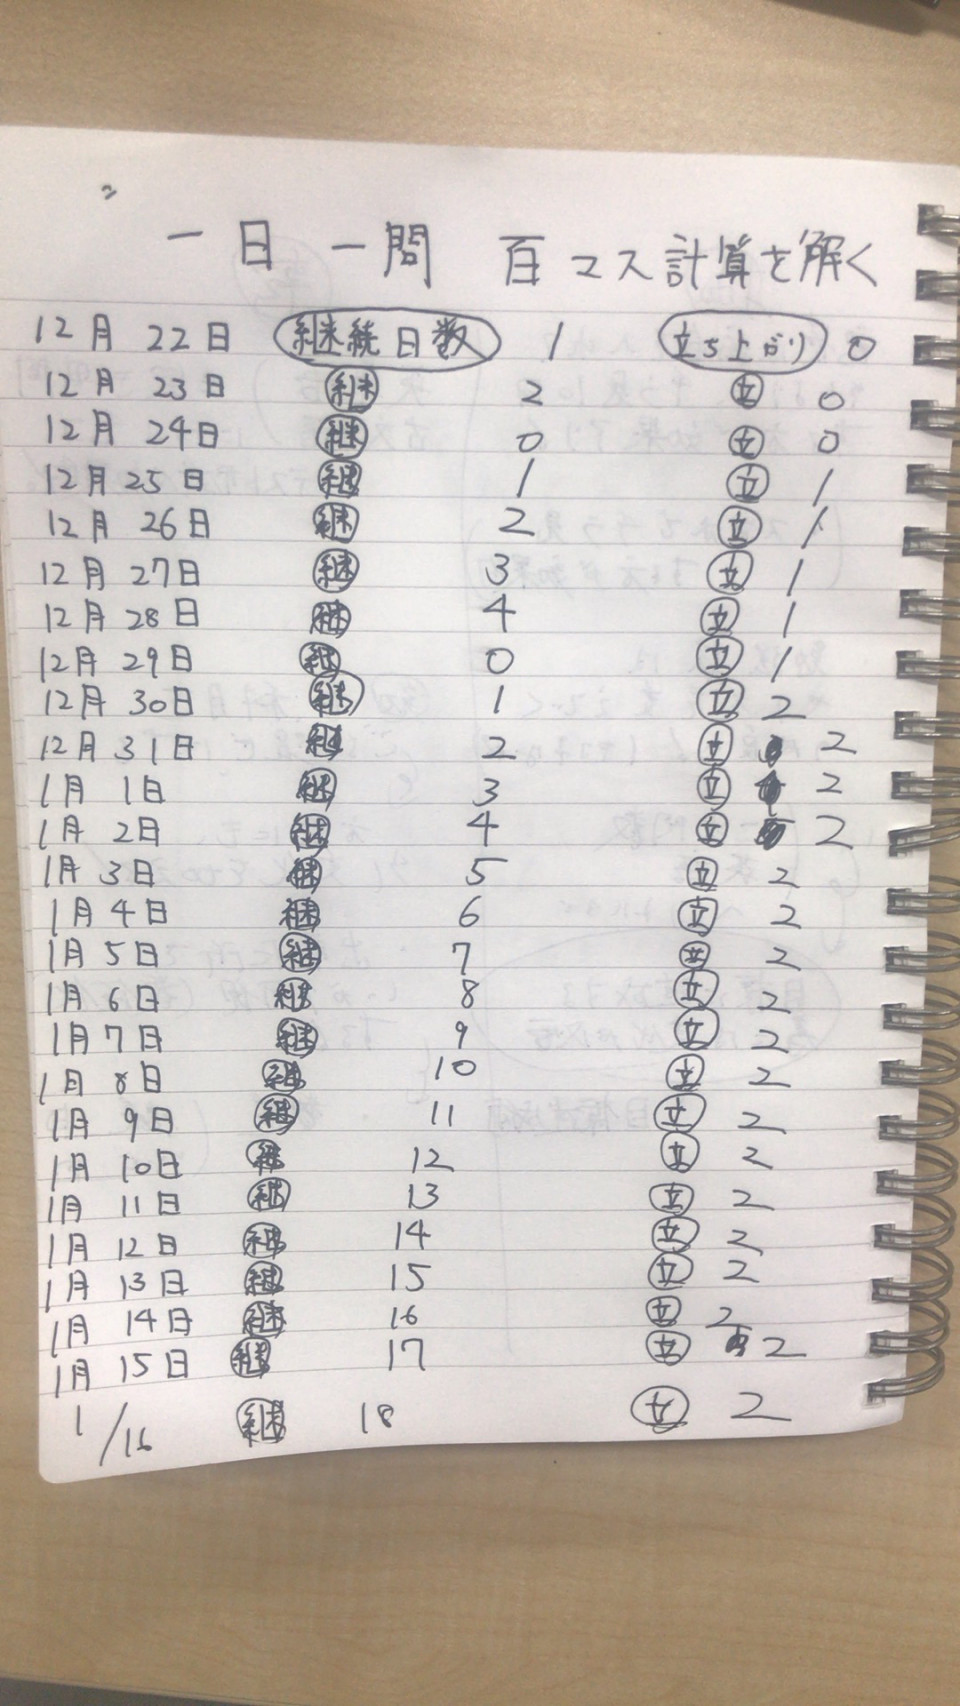 一日一問 百マス計算を解く
12月 22日 継続日数 1 立ち上がり 0
12月 23日 継 2 立 0
12月 24日 継 0 立 0
12月 25日 継 1 立 1
12月 26日 継 2 立 1
12月 27日 継 3 立 1
12月 28日 継 4 立 1
12月 29日 継 0 立 1
12月 30日 継 1 立 2
12月 31日 継 2 立 2
1月 1日 継 3 立 2
1月 2日 継 4 立 2
1月 3日 継 5 立 2
1月 4日 継 6 立 2
1月 5日 継 7 立 2
1月 6日 継 8 立 2
1月 7日 継 9 立 2
1月 8日 継 10 立 2
1月 9日 継 11 立 2
1月 10日 継 12 立 2
1月 11日 継 13 立 2
1月 12日 継 14 立 2
1月 13日 継 15 立 2
1月 14日 継 16 立 2
1月 15日 継 17 立 2
1/16 継 18 立 2